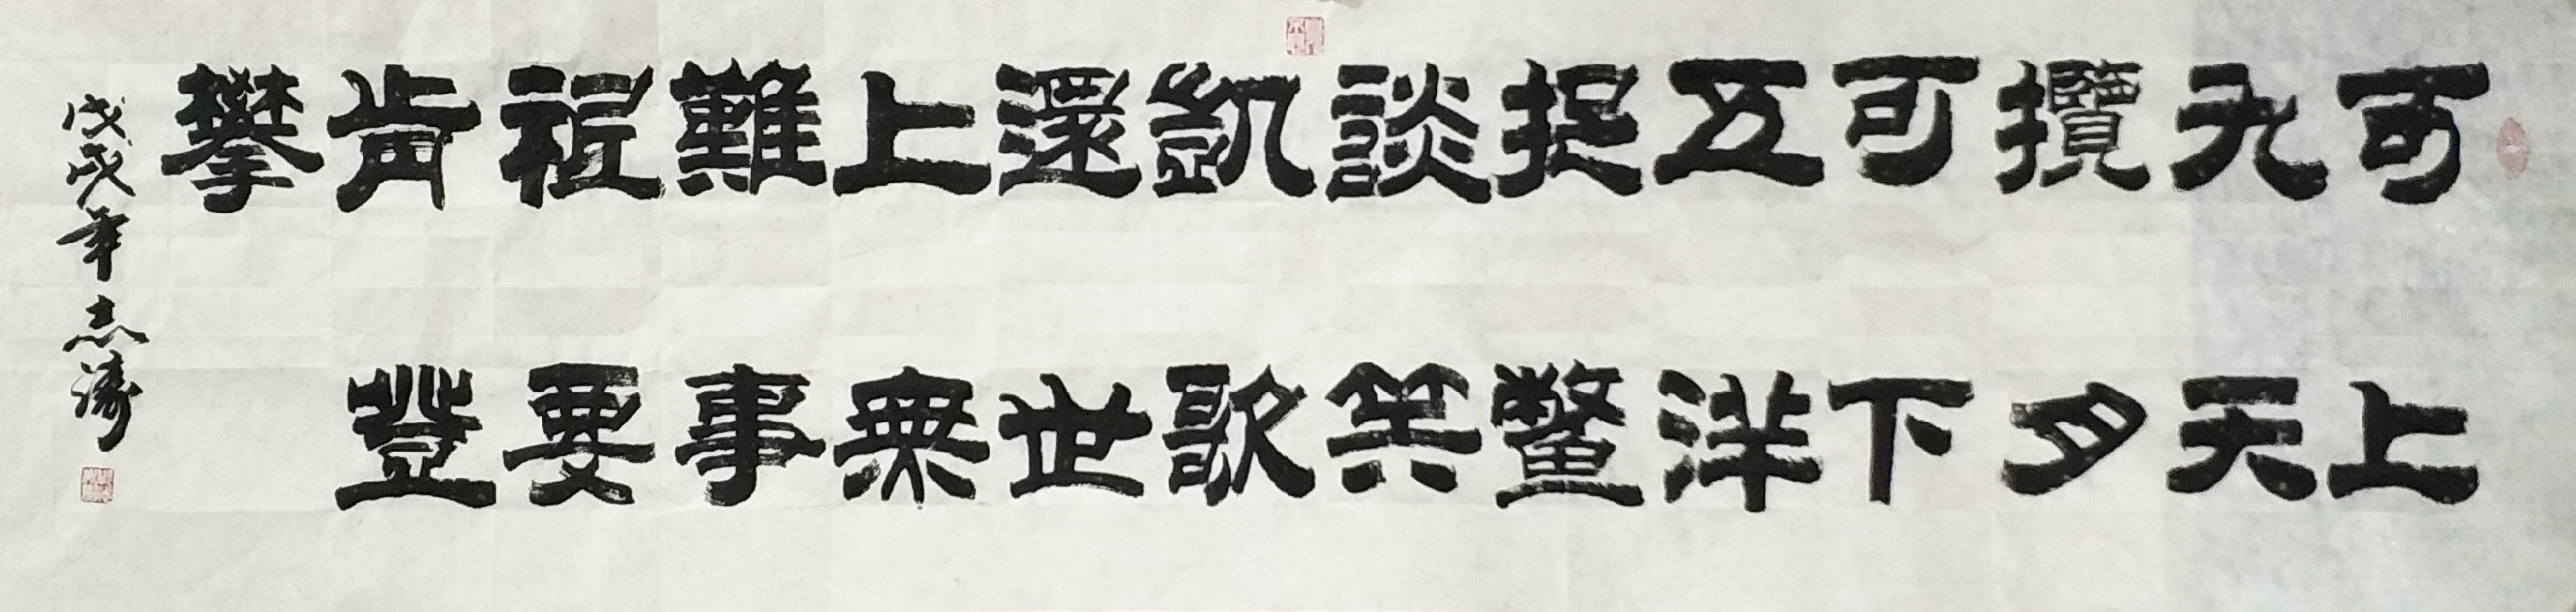 可上
九天
攬月
可下
五洋
捉鱉
談笑
凱歌
還世
上無
難事
祇要
肯登
攀
戊戌年志涛